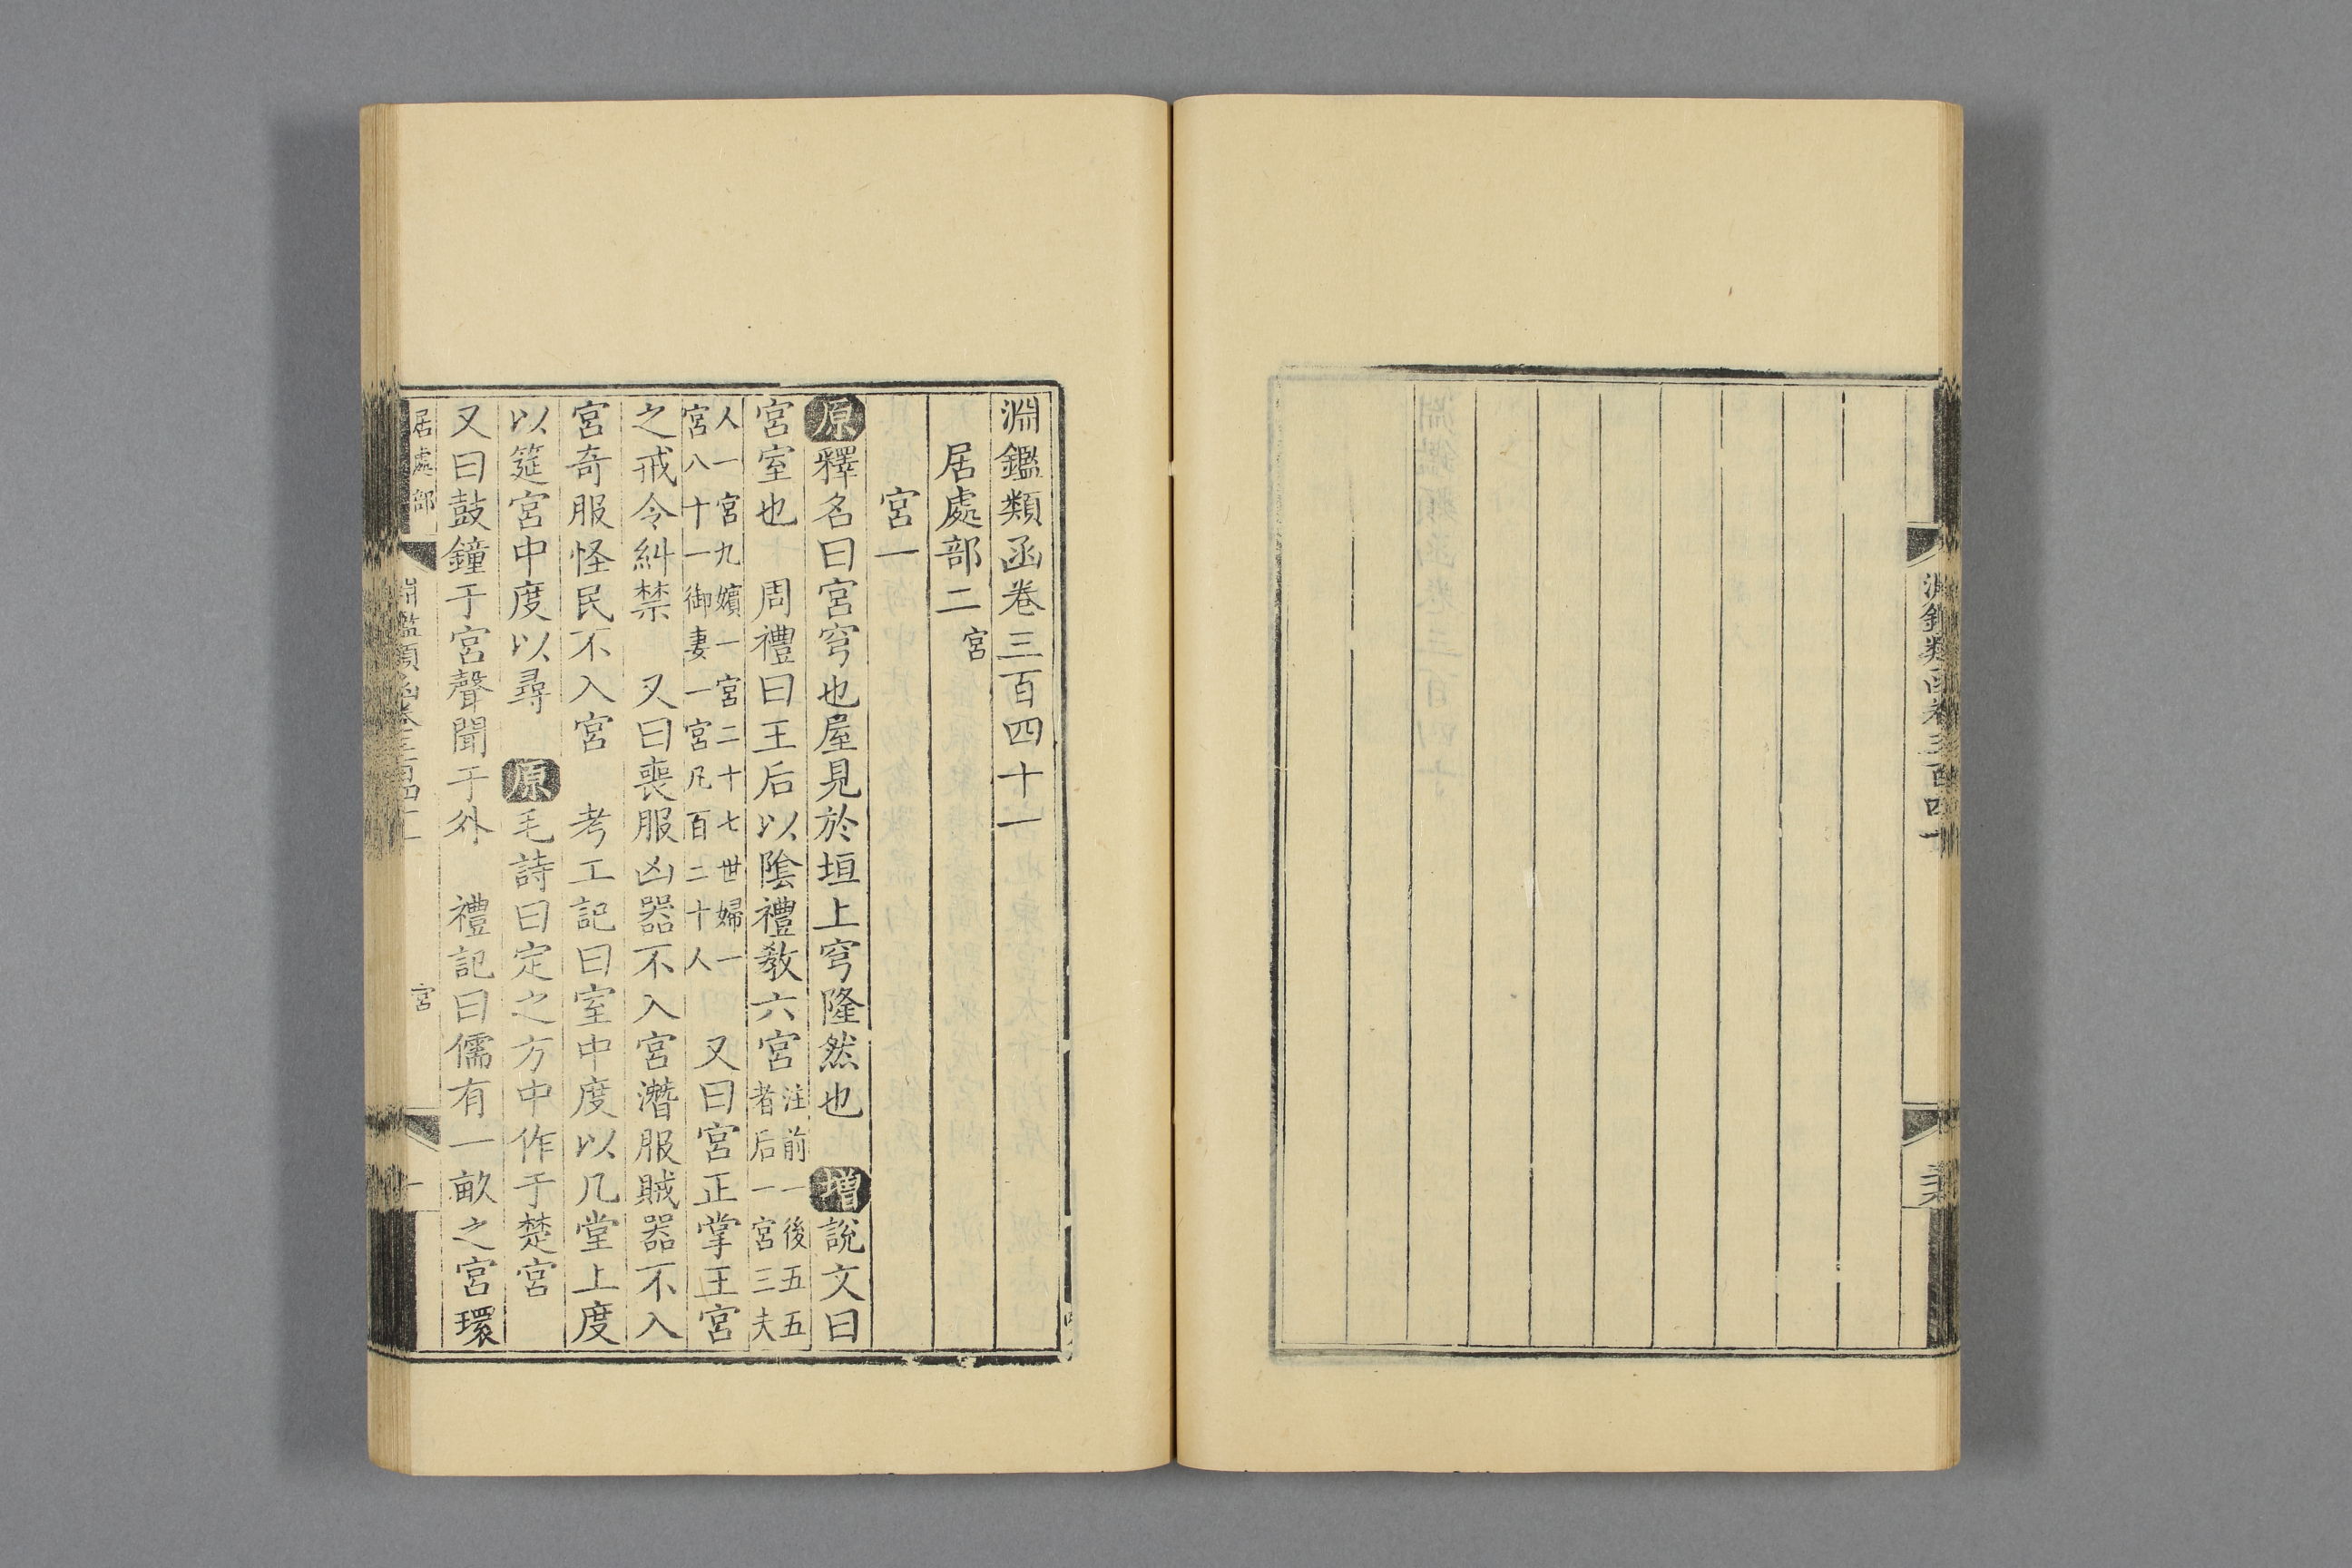 淵鑑類函卷三百四十一
居處部二宮
宮一
原釋名曰宮穹也屋見於垣上穹隆然也　增說文曰
宮室也　周禮曰王后以陰禮敎六宮注前一後五五
者后一宮三夫
人一宮九嬪一宮二十七世婦一
宮八十一御妻一宮凡百二十人　又曰宮正掌王宮
之戒令糾禁　又曰喪服凶器不入宮潛服賊器不入
宮奇服怪民不入宮　考工記曰室中度以几堂上度
以筵宮中度以尋　原毛詩曰定之方中作于楚宮
又曰鼓鐘于宮聲聞于外　禮記曰儒有一畝之宮環
居處部　淵鑑類函卷三百四十一　宮　一